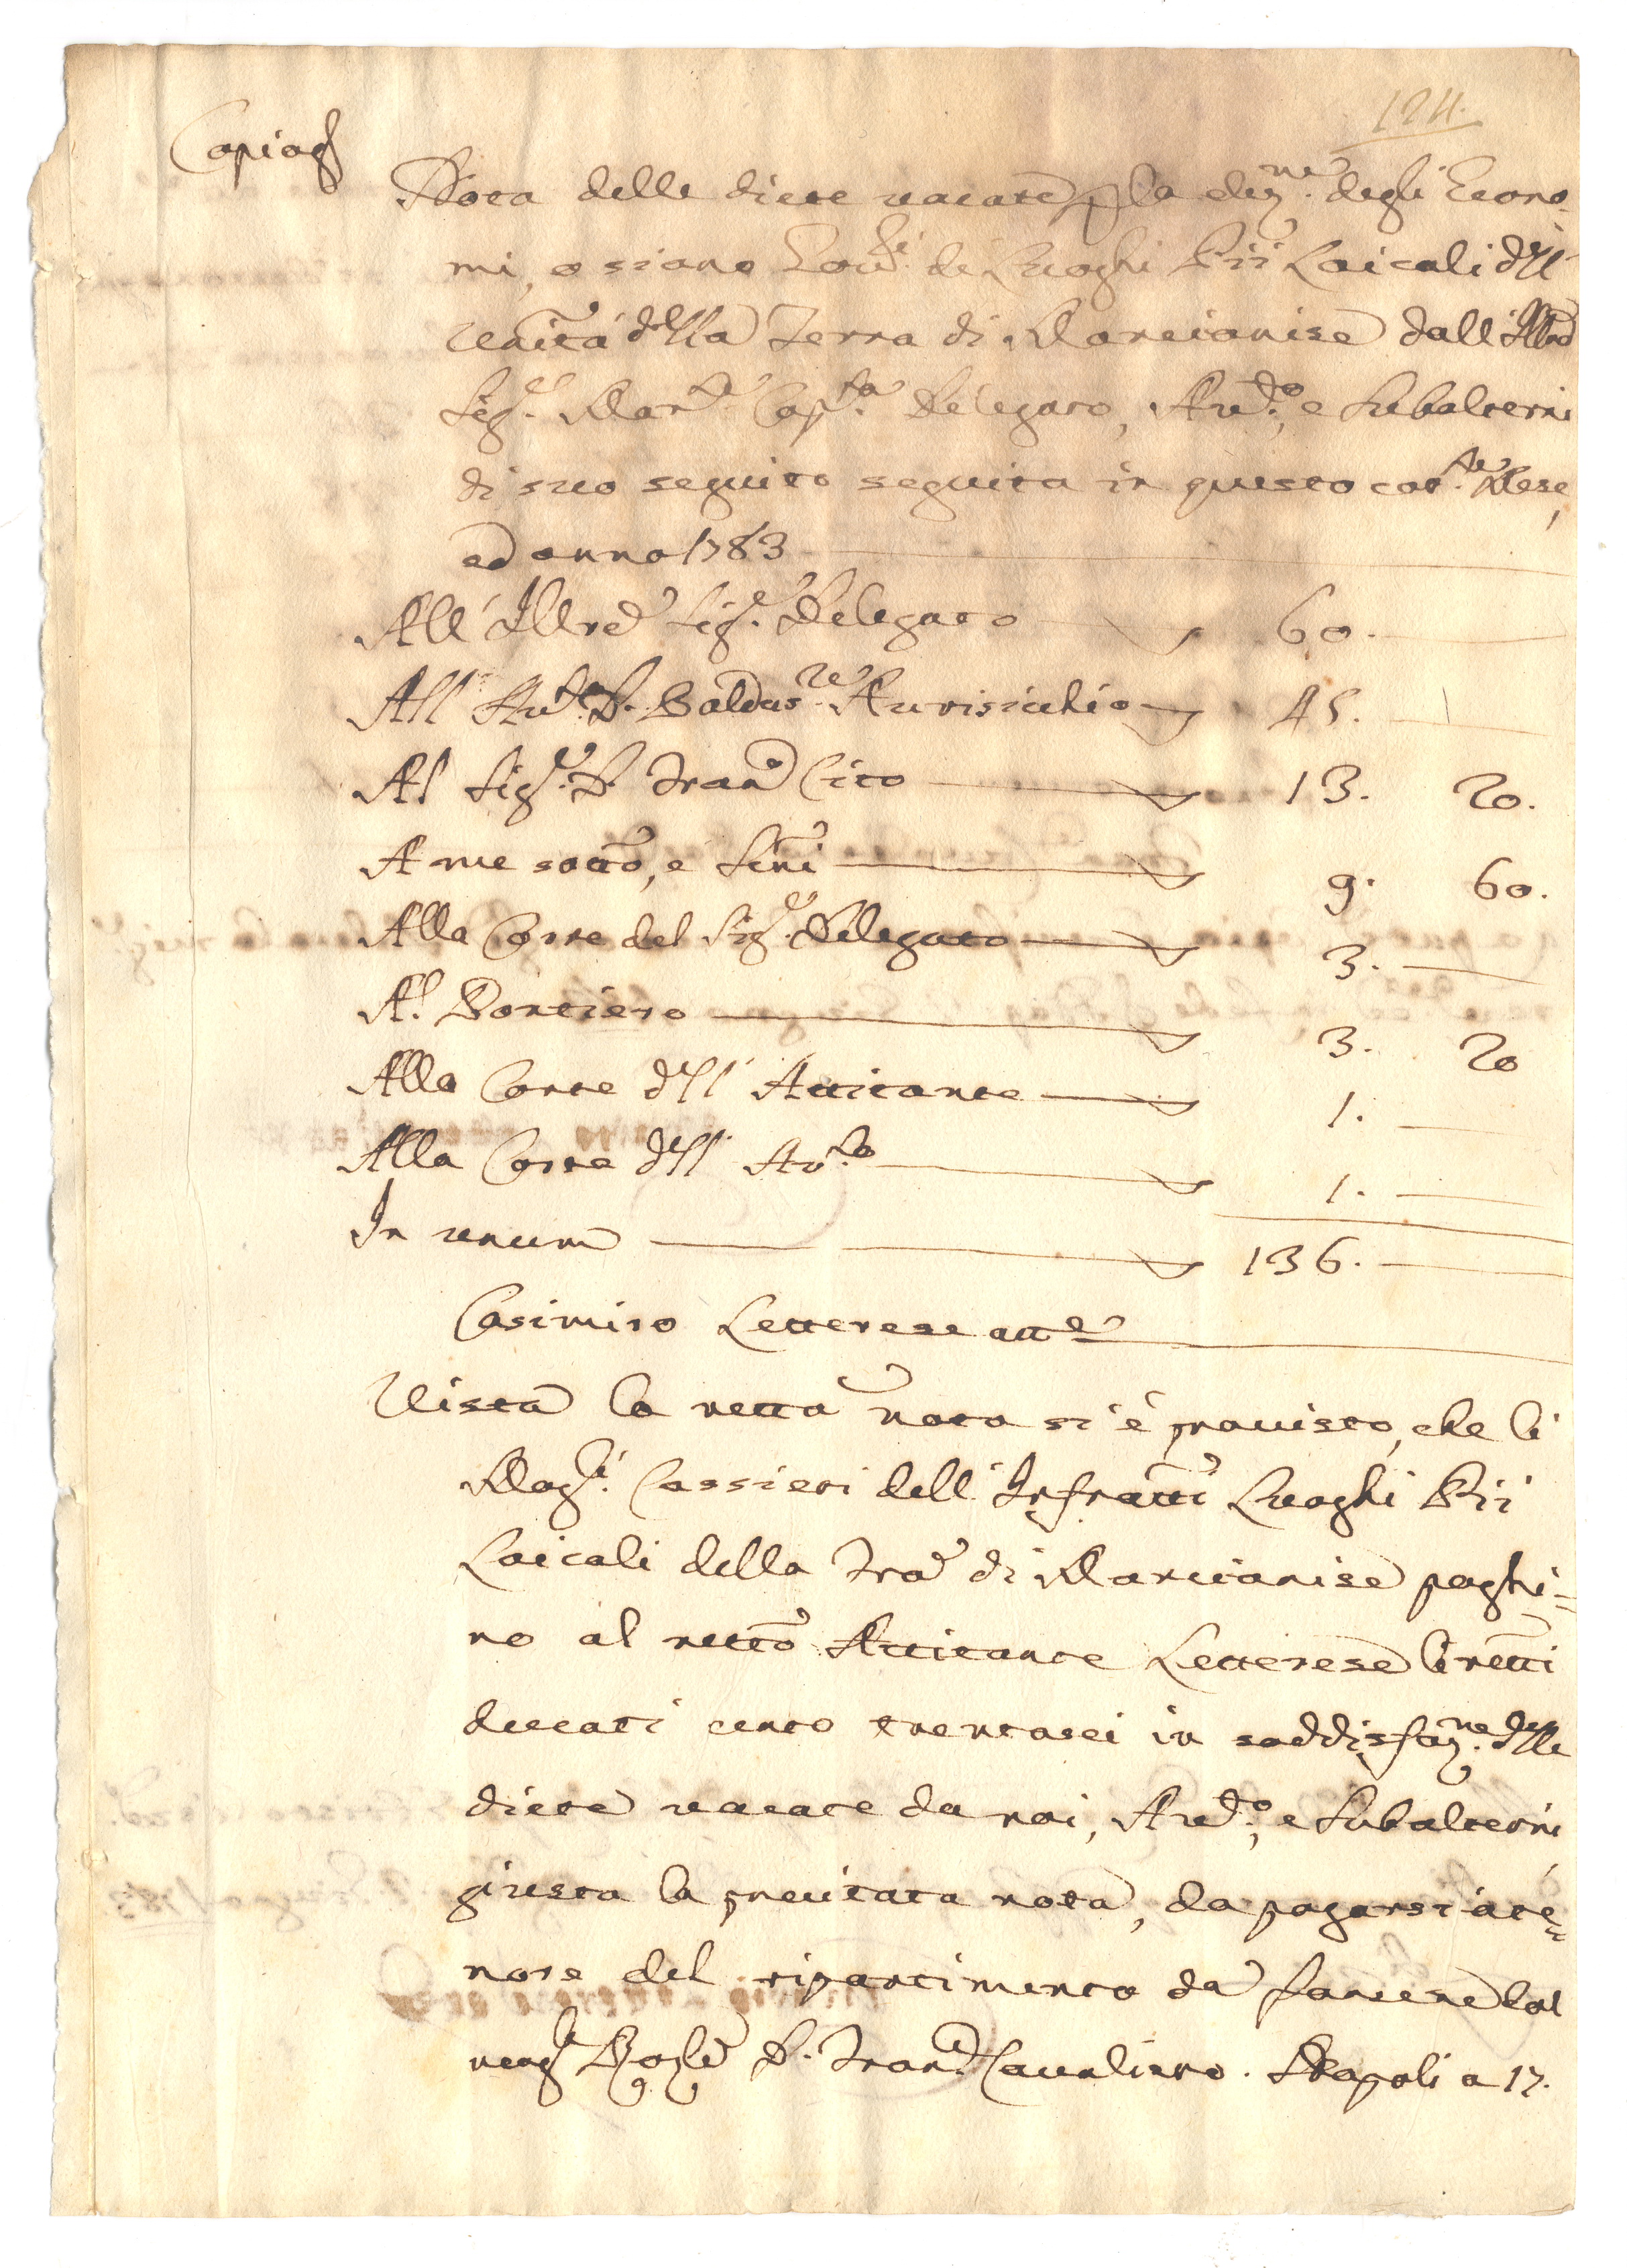 124.
Copia
Nota delle diete vacate p la elez.ne degli Econo-
mi, o siano Gov.ri de Luoghi Pii Laicali dell'
Uñità della Terra di Marcianise dall' Illre
Sig.e Mar.se Delegato, Aud.to, e Subalterni
di suo seguito seguita in questo cor.te Mese,
ed anno 1783
All' Illre Sig.e Delegato 60.
All' Aud.to D. Baldas.re Aurisicchio 45.
Al Sig.e D. Fran.o Cito 13. 20.
A me sotto, e 9. 60.
Alla Corte del Sig.e Delegato 3.
Al Portiero 3. 20
Alla Corte dell' Attitante 1.
Alla Corte dell' Aud.to 1.
In unum 136.
Casimiro Letterese att.e
Vista la retta nota si è provisto, che li
Mag.ci Cassieri dell' Infratti Luoghi Pii
Laicali della Tra di Marcianise paghi=
no al retto Attitante Letterese li retti
ducati cento trentasei in soddisfaz.ne delle
diete vacate da noi, Aud.to, e Subalterni
giusta la precitata nota, da pagarsi a te=
nore del ripartimento da farsene dal
D. Fran.o Cavaliero. Napoli a 17.